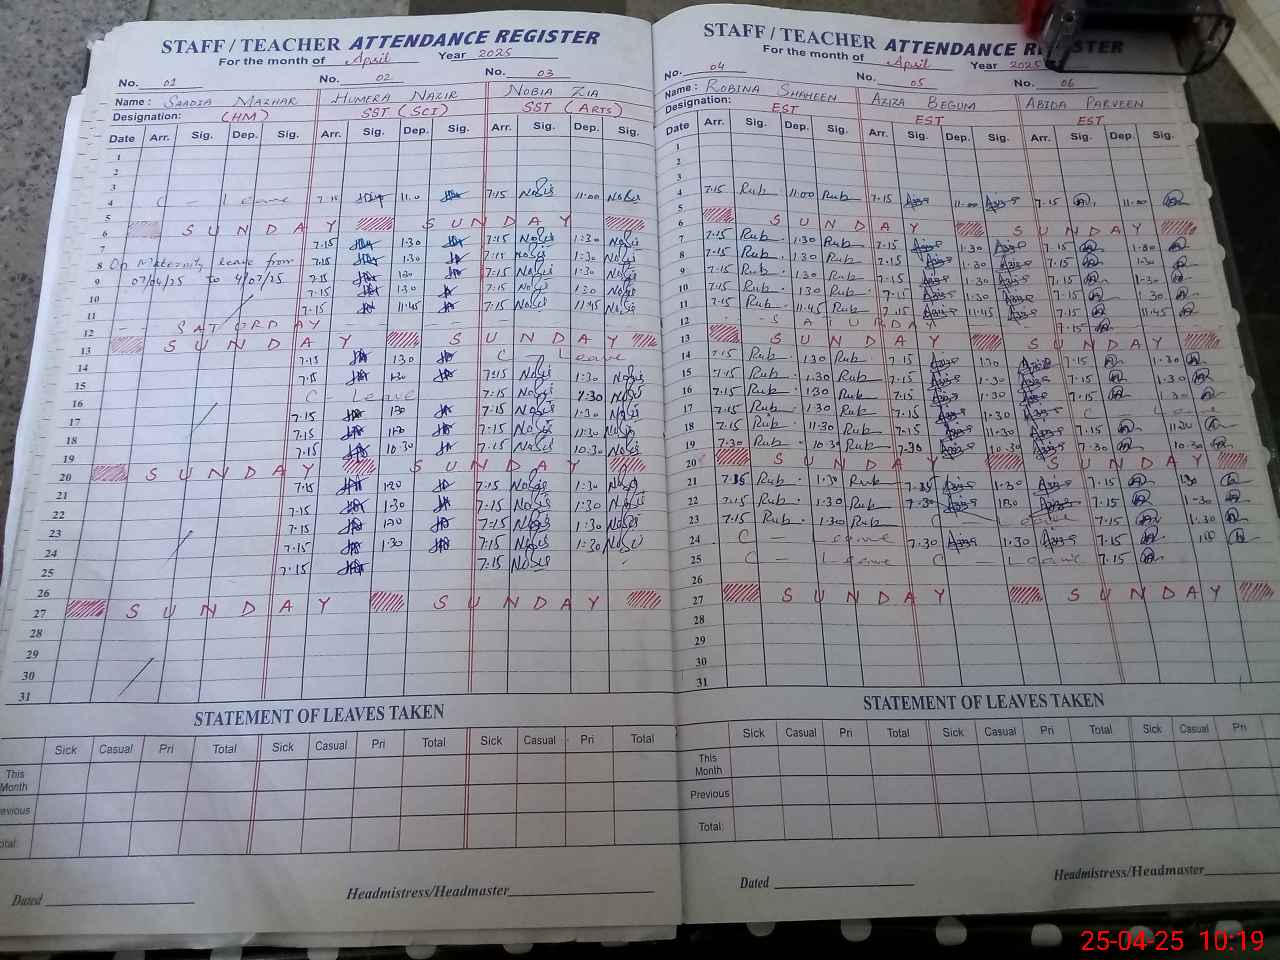 STAFF / TEACHER ATTENDANCE REGISTER
For the month of April Year 2025
No. 01 No. 02 No. 03
Name : SAADIA MAZHAR HUMERA NAZIR NOBIA ZIA
Designation: (HM) SST (SCI) SST (ARTS)
Date Arr. Sig. Dep. Sig. Arr. Sig. Dep. Sig. Arr. Sig. Dep. Sig.
1
2
3
4 C - Leave 7.15 11.0 7.15 11:00
5
6 SUNDAY SUNDAY
7 7.15 1.30 7.15 1:30
8 On Maternity Leave from 7.15 1.30 7.15 1:30
9 07/04/25 to 4/07/25 7.15 130 7.15 1:30
10 7.15 130 7.15 1:30
11 7.15 11.45 7.15 11:45
12 SATURDAY
13 SUNDAY SUNDAY
14 7.15 130 C - Leave
15 7.15 1.30 7:15 1:30
16 C - Leave 7.15 1:30
17 7.15 130 7.15 1:30
18 7.15 11.30 7.15 11:30
19 7.15 10.30 7.15 10:30
20 SUNDAY SUNDAY
21 7.15 1.30 7.15 1:30
22 7.15 1.30 7.15 1:30
23 7.15 1.30 7.15 1:30
24 7.15 1:30 7.15 1:30
25 7.15 7.15
26
27 SUNDAY SUNDAY
28
29
30
31
STATEMENT OF LEAVES TAKEN
Sick Casual Pri Total Sick Casual Pri Total Sick Casual Pri Total
This Month
evious
otal:
Dated Headmistress/Headmaster
STAFF / TEACHER ATTENDANCE REGISTER
For the month of April Year 2025
No. 04 No. 05 No. 06
Name : ROBINA SHAHEEN AZIZA BEGUM ABIDA PARVEEN
Designation: EST EST EST
Date Arr. Sig. Dep. Sig. Arr. Sig. Dep. Sig. Arr. Sig. Dep. Sig.
1
2
3
4 7.15 Rub 11.00 Rub 7.15 11.00 7.15 11.00
5
6 SUNDAY SUNDAY
7 7.15 Rub 1.30 Rub 7.15 1.30 7.15 1.30
8 7.15 Rub 1.30 Rub 7.15 1.30 7.15 1.30
9 7.15 Rub 1.30 Rub 7.15 1.30 7.15 1.30
10 7.15 Rub 1.30 Rub 7.15 1.30 7.15 1.30
11 7.15 Rub 11.45 Rub 7.15 11.45 7.15 11.45
12 SATURDAY 7.15
13 SUNDAY SUNDAY
14 7.15 Rub 1.30 Rub 7.15 1.30 7.15 1.30
15 7.15 Rub 1.30 Rub 7.15 1.30 7.15 1.30
16 7.15 Rub 1.30 Rub 7.15 1.30 7.15 1.30
17 7.15 Rub 1.30 Rub 7.15 1.30 C - Leave
18 7.15 Rub 11.30 Rub 7.15 11.30 7.15
19 7.30 Rub 10.30 Rub 7.30 10.30 7.30 10.30
20 SUNDAY SUNDAY
21 7.15 Rub 1.30 Rub 7.15 1.30 7.15
22 7.15 Rub 1.30 Rub 7.30 1.30 7.15 1.30
23 7.15 Rub 1.30 Rub C - Leave 7.15 1.30
24 C - Leave 7.30 1.30 7.15
25 C Leave C - Leave 7.15
26
27 SUNDAY SUNDAY
28
29
30
31
STATEMENT OF LEAVES TAKEN
Sick Casual Pri Total Sick Casual Pri Total Sick Casual Pri
This Month
Previous
Total:
Dated Headmistress/Headmaster
25-04-25 10:19